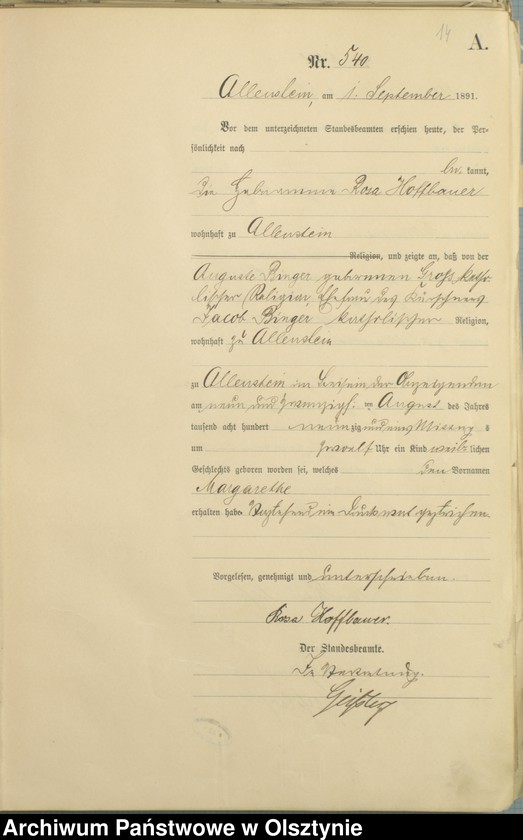 14
A.
Nr. 540.
Allenstein, am 1. September 1891.
Vor dem unterzeichneten Standesbeamten erschien heute, der Per-
sönlichkeit nach
be kannt,
die Hebamme Rosa Hoffbauer
wohnhaft zu Allenstein
Religion, und zeigte an, daß von der
Auguste Binger geborenen Gross katho-
lischer Religion, Ehefrau des Kürschners
Jacob Binger katholischer Religion,
wohnhaft zu Allenstein
zu Allenstein in der Anzeigenden
am neun und zwanzigs ten August des Jahres
tausend acht hundert neunzig und eins Mittags
um zwölf Uhr ein Kind weiblichen
Geschlechts geboren worden sei, welches den Vornamen
Margarethe
erhalten habe. Druckwort gestrichen.
Vorgelesen, genehmigt und unterschrieben.
Rosa Hoffbauer.
Der Standesbeamte.
In Vertretung.
Archiwum Państwowe w Olsztynie